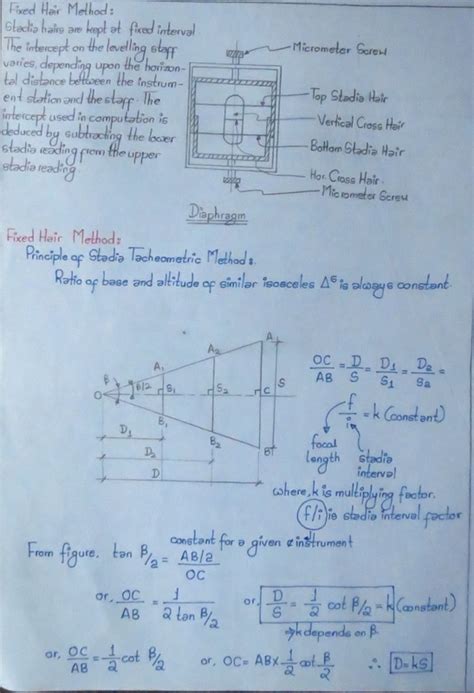 Fixed Hair Method:
Stadia hairs are kept at fixed interval
The intercept on the levelling staff
varies, depending upon the horizon-
tal distance between the instrum-
ent station and the staff. The
intercept used in computation is
deduced by subtracting the lower
stadia reading from the upper
stadia reading
Micrometer Screw
Top Stadia Hair
Vertical Cross Hair
Bottom Stadia Hair
Hor. Cross Hair
Micrometer Screw
Diaphragm
Fixed Hair Method:
Principle of Stadia Tacheometric Method:
Ratio of base and altitude of similar isosceles Δˢ is always constant.
O β β/2 A₁ A₂ A
S₁ S₂ C S
B₁ B₂ B
D₁
D₂
D
OC/AB = D/S = D₁/S₁ = D₂/S₂ =
f/i = k (constant)
focal length
stadia interval
where, k is multiplying factor.
(f/i) is stadia interval factor
constant for a given instrument
From figure, tan β/2 = (AB/2)/OC
or, OC/AB = 1/(2 tan β/2)
or, D/S = 1/2 cot β/2 = k (constant)
→ k depends on β.
or, OC/AB = 1/2 cot β/2
or, OC = AB × 1/2 cot β/2
∴ D = kS